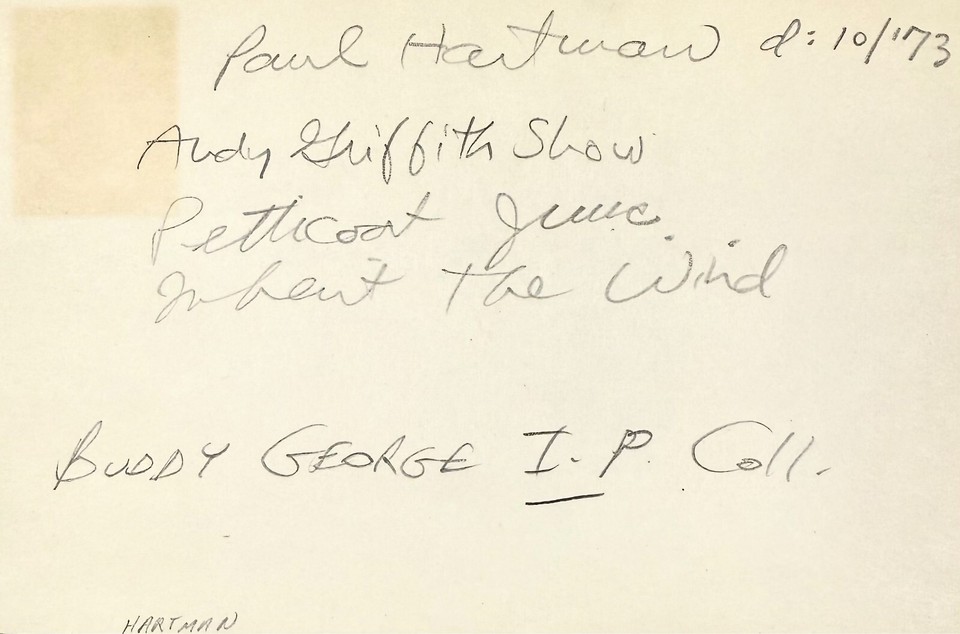 Paul Hartman d: 10/'73
Andy Griffith Show
Petticoat Junc.
Inherit The Wind
BUDDY GEORGE I. P. Coll.
HARTMAN